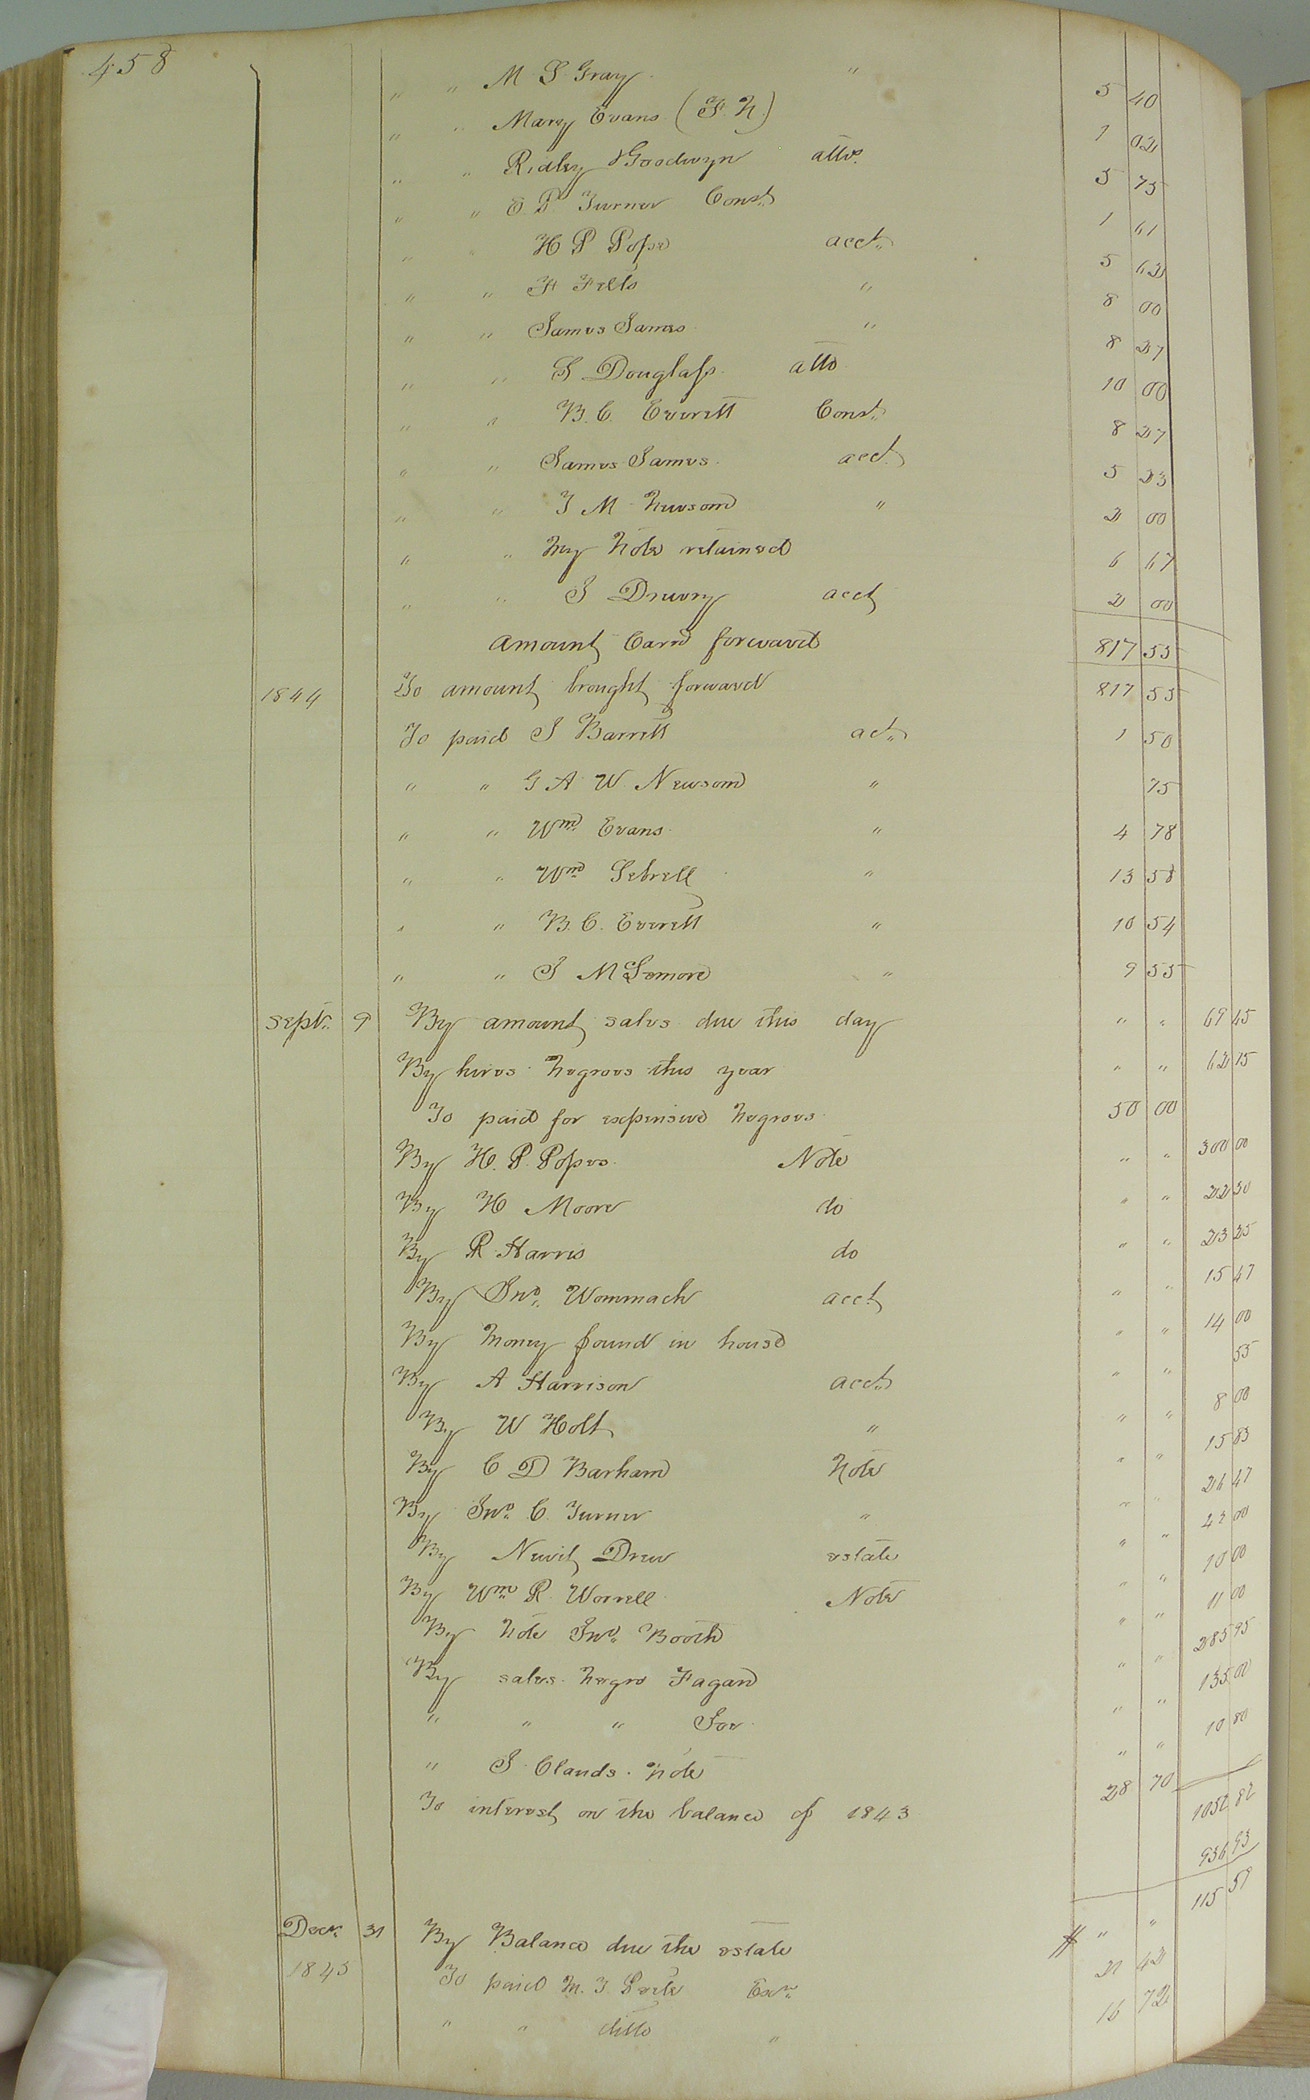 458
" " M S Gray " 5 40
" " Mary Evans (F. N.) 1 02
" " Ridley & Goodwyn attos. 5 75
" " E P Turner Const. 1 61
" " H P Pope acct. 5 62
" " H Felts " 8 00
" " James James " 8 27
" " S Douglass atto 10 00
" " B. C. Everett Const. 8 27
" " James James acct. 5 23
" " J M Newsom " 2 00
" " My Note retained 6 67
" " J Drewry acct 2 00
Amount Carrd forward 817 55
1844 To amount brought forward 817 55
To paid J Barrett act. 1 50
" " G A W Newsom " 75
" " Wm. Evans " 4 78
" " Wm Sebrell " 13 58
" " B. C. Everett " 10 54
" " J McLemore " 9 55
Sept. 9 By amount sales due this day " " 69 45
By hires Negroes this year " " 62 15
To paid for expensive Negroes 50 00
By H. P. Popes Note " " 300 00
By H Moore do " " 22 50
By R Harris do " " 23 25
By Jno. Wommack acct " " 15 47
By Money found in house " " 14 00
By A Harrison acct. " " 55
By W Holt " " " 8 00
By C D Barham Note " " 15 83
By Jno. C. Turner " " " 26 47
By Newit Drew estate " " 42 00
By Wm R Worrell Note " " 10 00
By Note Jno. Booth " " 11 00
By sales Negro Fagan " " 285 95
" " " Joe " " 135 00
" J Clauds Note " " 10 80
To interest on the balance of 1843 28 70
1052 82
936 93
115 59
Decr. 31 By Balance due the estate # " "
1845 To paid M. T. Exr. 21 42
" " ditto " 16 72